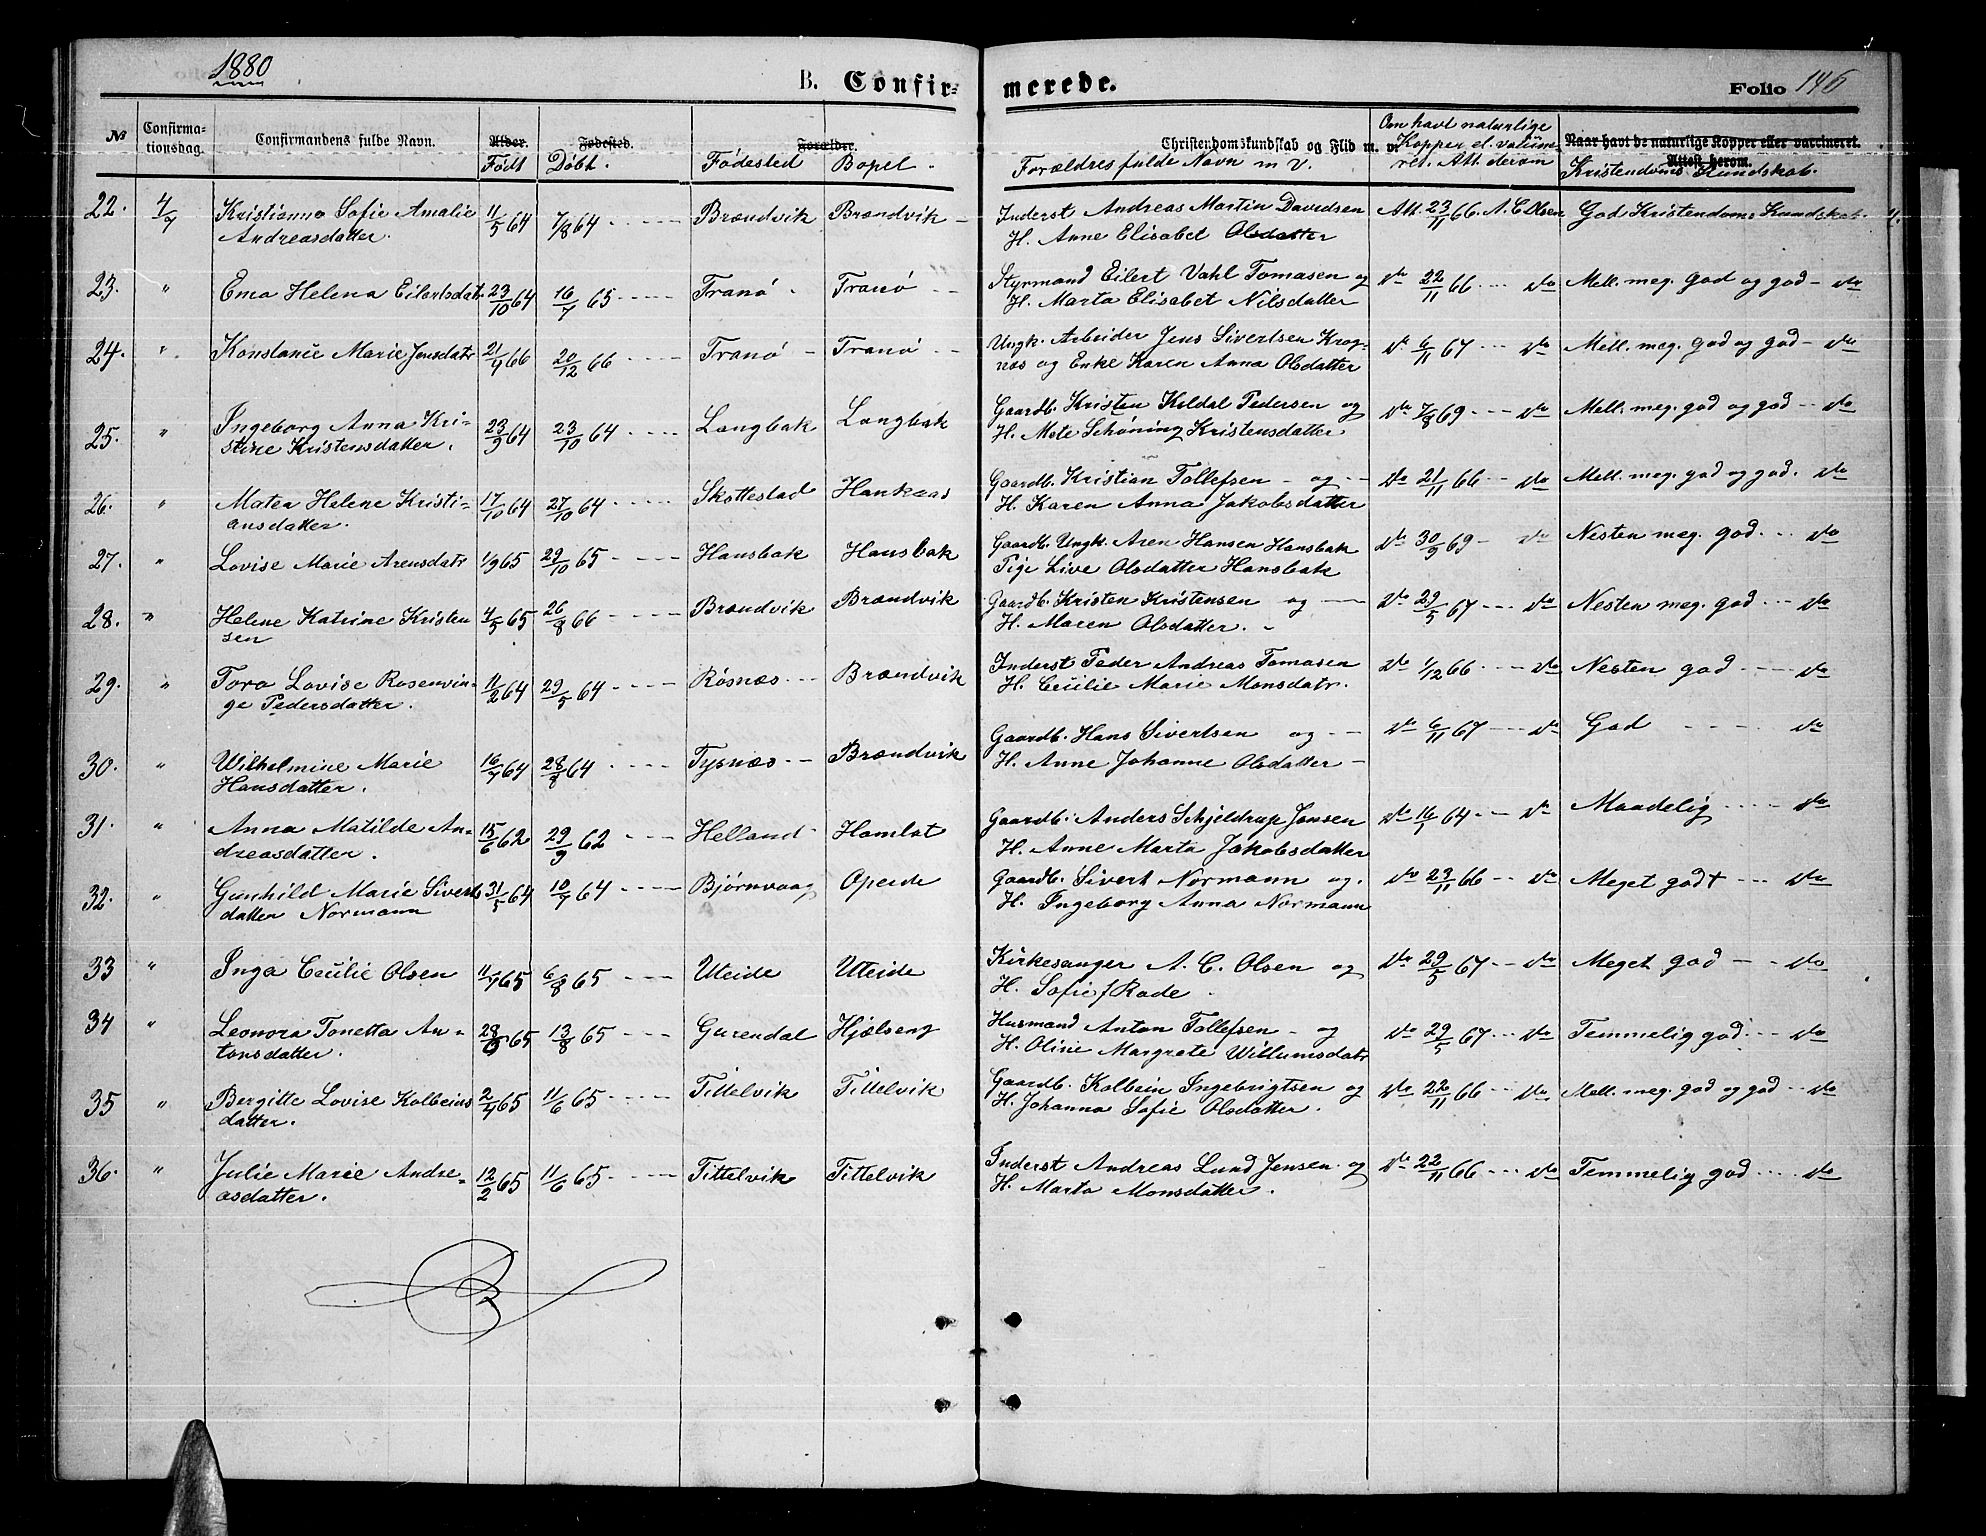 1880
B. Confir-
merede.
Folio 146
№
Confirma-
tionsdag.
Confirmandens fulde Navn.
Alder.
Født
Fødested.
Døbt.
Forældre.
Fødested
Bopel.
Christendomskundskab og Flid m. m.
Forældres fulde Navn m v.
Om havt naturlige
Kopper el. vakine-
ret. Att. derom
Naar havt de naturlige Kopper eller vaccineret.
Attest herom.
Kristendoms Kundskab.
22. 4/7 Kristianna Sofie Amalie 11/5 64 7/8 64 Brændvik Brændvik Inderst Andreas Martin Davidsen Att. 23/11 66. A. C. Olsen God Kristendoms Kundskab.
Andreasdatter. H. Anne Elisabet Olsdatter
23. " Ema Helena Eilertsdatr 23/10 64 16/7 65 Tranø Tranø Styrmand Eilert Vahl Tomasen og do 22/11 66 do Mell. meg. god og god do
H. Marta Elisabet Nilsdatter
24. " Konstance Marie Jensdatr 21/4 66 20/12 66 Tranø Tranø Ungk. Arbeider Jens Sivertsen Krog- do 6/11 67 do Mell. meg. god og god do
næs og Enke Karen Anna Olsdatter
25. " Ingeborg Anna Kri- 23/9 64 23/10 64 Langbak Langbak Gaardb. Kristen Kildal Pedersen og do 7/8 69 do Mell. meg. god og god do
stine Kristensdatter. H. Mete Schøning Kristensdatter
26. " Matea Helene Kristi- 17/10 64 27/10 64 Skottestad Hanknæs Gaardb. Kristian Tollefsen og do 21/11 66 do Mell. meg. god og god. do
ansdatter. H. Karen Anna Jakobsdatter
27. " Lovise Marie Arensdatr 1/9 65 29/10 65 Hansbak Hansbak Gaardb. Ungk. Aren Hansen Hansbak do 30/9 69 do Nesten meg. god. do
Pige Live Olsdatter Hansbak
28. " Helene Katrine Kristen 4/5 65 26/8 66 Brændvik Brændvik Gaardb. Kristen Kristensen og do 29/5 67 do Nesten meg. god do
sen H. Maren Olsdatter.
29. " Tora Lovise Rosenvin- 11/2 64 29/5 64 Røsnæs Brændvik Inderst Peder Andreas Tomasen do 1/12 66 do Nesten god do
ge Pedersdatter. H. Cecilie Marie Monsdatr.
30. " Wilhelmine Marie 16/4 64 28/8 64 Tysnæs Brændvik Gaardb. Hans Sivertsen og do 6/11 67 do God do
Hansdatter. H. Anne Johanne Olsdatter
31. " Anna Matilde An- 15/6 62 29/9 62 Helland Hamlot Gaardb. Anders Schjeldrup Jensen do 16/1 64 do Maadelig do
dreasdatter. H. Anne Marta Jakobsdatter
32. " Gunhild Marie Siverts 31/5 64 10/7 64 Bjørnvaag Opeide Gaardb. Sivert Normann og do 23/11 66 do Meget godt do
datter Normann H. Ingeborg Anna Normann
33 " Inga Cecilie Olsen 11/4 65 6/8 65 Uteide Uteide Kirkesanger A. C. Olsen og do 29/5 67 do Meget god do
H. Sofie f Rode
34 " Leonora Tonetta An- 28/6 65 13/8 65 Gurendal Hjelseng Husmand Anton Tollefsen og do 29/5 67 do Temmelig god do
tonsdatter. H. Oline Margrete Willumsdatr
35 " Bergitte Lovise Kolbeins 2/4 65 11/6 65 Tittelvik Tittelvik Gaardb. Kolbein Ingebrigtsen og do 22/11 66 do Mell. meg. god og god do
datter. H. Johanna Sofie Olsdatter.
36. " Julie Marie Andre- 12/2 65 11/6 65 Tittelvik Tittelvik Inderst Andreas Lund Jensen og do 22/11 66 do Temmelig god do
asdatter. H. Marta Monsdatter.